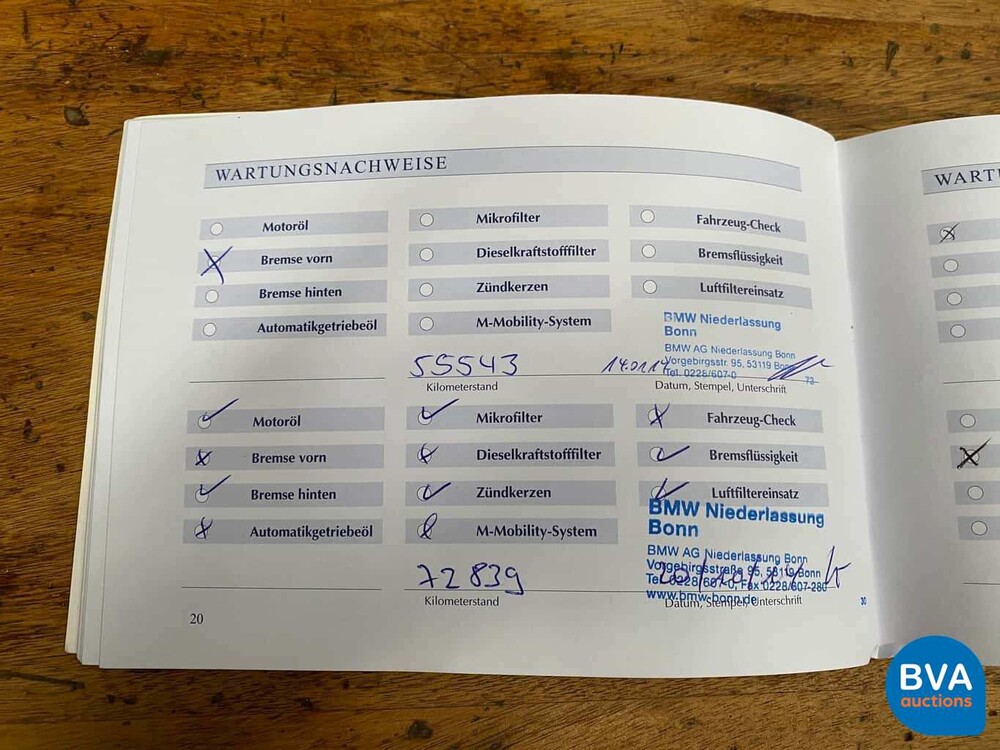 WARTUNGSNACHWEISE
Motoröl
Mikrofilter
Fahrzeug-Check
Bremse vorn
Dieselkraftstofffilter
Bremsflüssigkeit
Bremse hinten
Zündkerzen
Luftfiltereinsatz
Automatikgetriebeöl
M-Mobility-System
BMW Niederlassung
Bonn
BMW AG Niederlassung Bonn
Vorgebirgsstr. 95, 53119 Bonn
Tel. 0228/607-0
73
55543
14.01.14
Kilometerstand
Datum, Stempel, Unterschrift
Motoröl
Mikrofilter
Fahrzeug-Check
Bremse vorn
Dieselkraftstofffilter
Bremsflüssigkeit
Bremse hinten
Zündkerzen
Luftfiltereinsatz
Automatikgetriebeöl
M-Mobility-System
BMW Niederlassung
Bonn
BMW AG Niederlassung Bonn
Vorgebirgsstraße 95, 53119 Bonn
Tel. 0228/607-0, Fax 0228/607-280
www.bmw-bonn.de
72839
Kilometerstand
Datum, Stempel, Unterschrift
30
20
WART
BVA
auctions